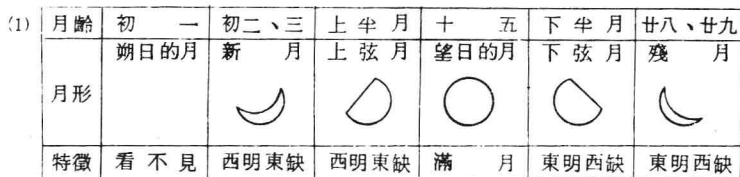 (1) 月齡 初一 初二、三 上半月 十五 下半月 廿八、廿九
月形 朔日的月 新月 上弦月 望日的月 下弦月 殘月
特徵 看不見 西明東缺 西明東缺 滿月 東明西缺 東明西缺